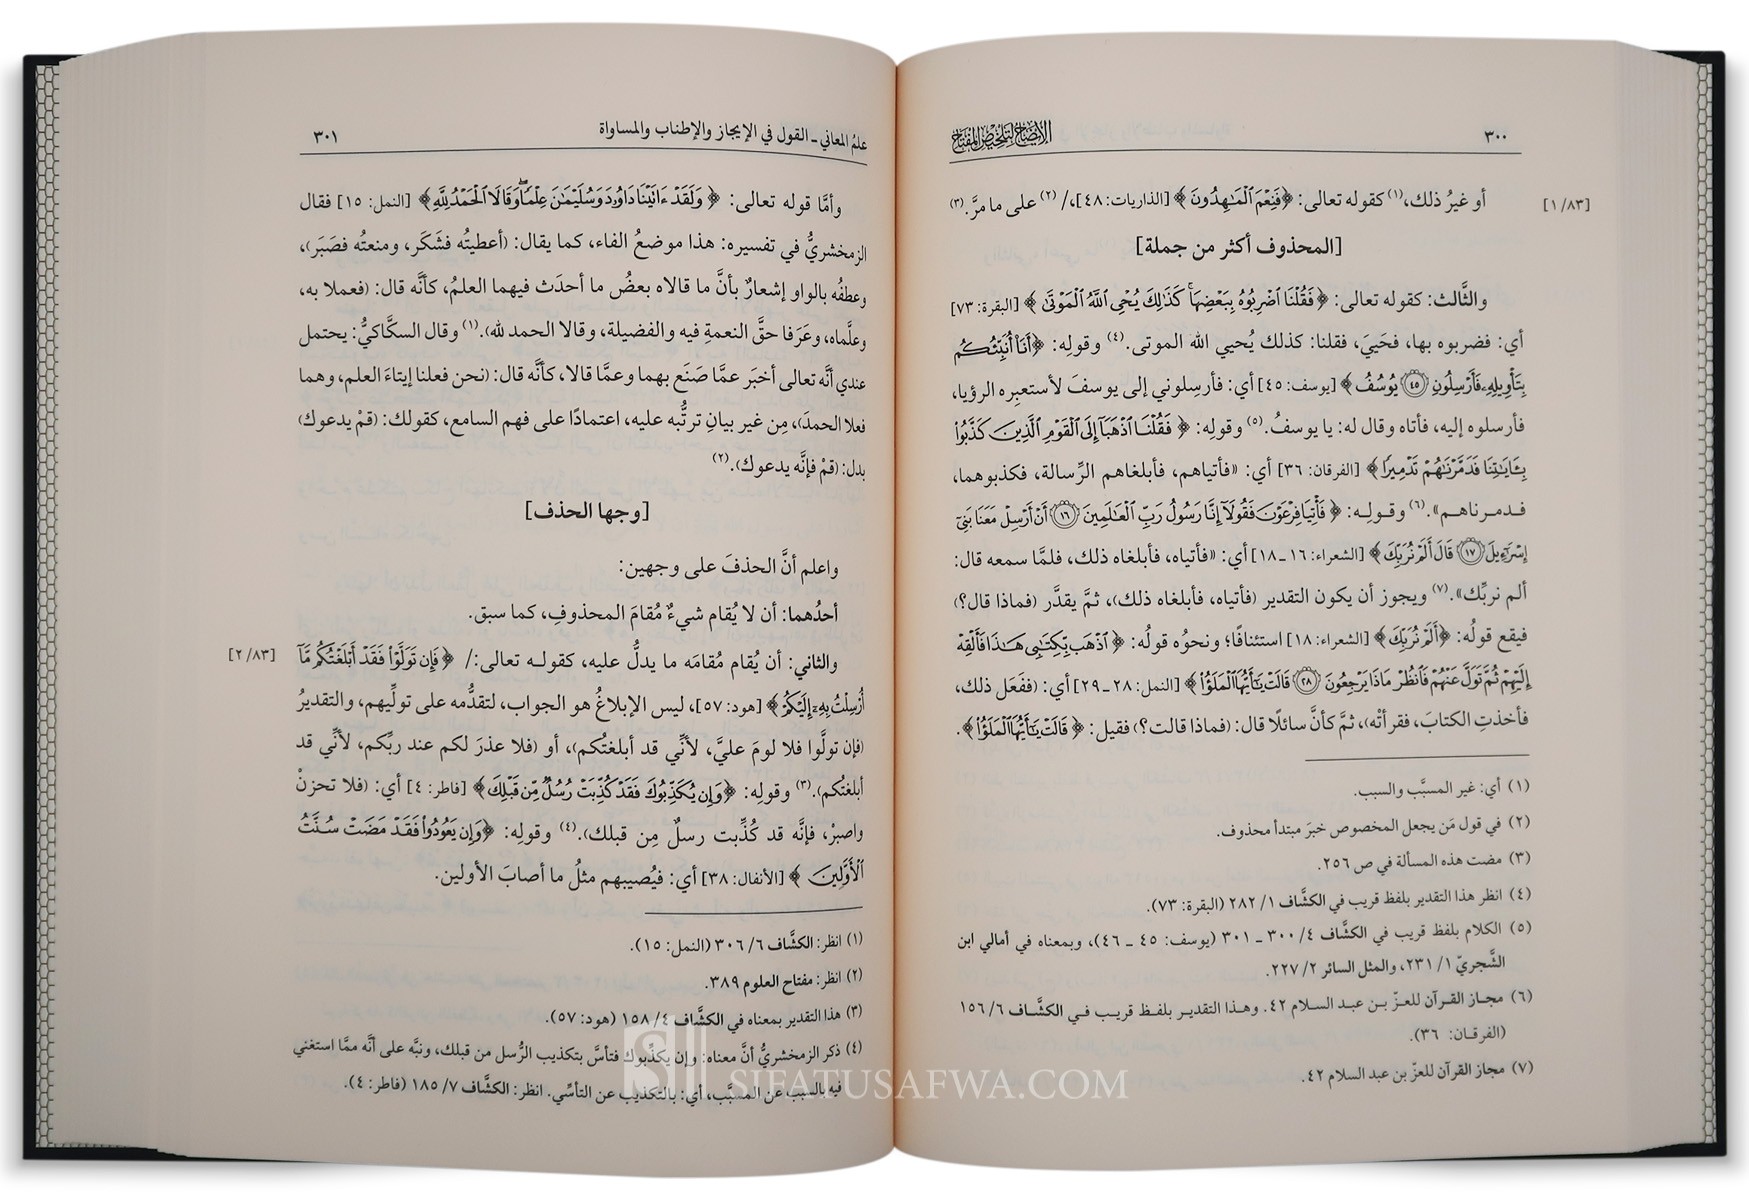 ٣٠٠
الإيضاح لتلخيص المفتاح
[١/٨٣]
أو غيرُ ذلك،(١) كقوله تعالى: ﴿فَنِعْمَ الْمَاهِدُونَ﴾ [الذاريات: ٤٨]،/ (٢) على ما مرَّ.(٣)
[المحذوف أكثر من جملة]
والثَّالث: كقوله تعالى: ﴿فَقُلْنَا اضْرِبُوهُ بِبَعْضِهَا كَذَٰلِكَ يُحْيِي اللَّهُ الْمَوْتَىٰ﴾ [البقرة: ٧٣]
أي: فضربوه بها، فحَيِيَ، فقلنا: كذلك يُحيي الله الموتى.(٤) وقولِه: ﴿أَنَا أُنَبِّئُكُم
بِتَأْوِيلِهِ فَأَرْسِلُونِ ٤٥ يُوسُفُ﴾ [يوسف: ٤٥] أي: فأرسِلوني إلى يوسفَ لأستعبِره الرؤيا،
فأرسلوه إليه، فأتاه وقال له: يا يوسفُ.(٥) وقولِه: ﴿فَقُلْنَا اذْهَبَا إِلَى الْقَوْمِ الَّذِينَ كَذَّبُوا
بِآيَاتِنَا فَدَمَّرْنَاهُمْ تَدْمِيرًا﴾ [الفرقان: ٣٦] أي: «فأتياهم، فأبلغاهم الرِّسالة، فكذبوهما،
فدمرناهم».(٦) وقولِه: ﴿فَأْتِيَا فِرْعَوْنَ فَقُولَا إِنَّا رَسُولُ رَبِّ الْعَالَمِينَ ١٦ أَنْ أَرْسِلْ مَعَنَا بَنِي
إِسْرَائِيلَ ١٧ قَالَ أَلَمْ نُرَبِّكَ﴾ [الشعراء: ١٦ ـ ١٨] أي: «فأتياه، فأبلغاه ذلك، فلمَّا سمعه قال:
ألم نربِّك».(٧) ويجوز أن يكون التقدير (فأتياه، فأبلغاه ذلك)، ثمَّ يقدَّر (فماذا قال؟)
فيقع قولُه: ﴿أَلَمْ نُرَبِّكَ﴾ [الشعراء: ١٨] استئنافًا؛ ونحوُه قولُه: ﴿اذْهَب بِّكِتَابِي هَٰذَا فَأَلْقِهْ
إِلَيْهِمْ ثُمَّ تَوَلَّ عَنْهُمْ فَانظُرْ مَاذَا يَرْجِعُونَ ٢٨ قَالَتْ يَا أَيُّهَا الْمَلَأُ﴾ [النمل: ٢٨ ـ ٢٩] أي: (ففعَل ذلك،
فأخذتِ الكتابَ، فقرأتْه)، ثمَّ كأنَّ سائلًا قال: (فماذا قالت؟) فقيل: ﴿قَالَتْ يَا أَيُّهَا الْمَلَأُ﴾.
(١) أي: غير المسبَّب والسبب.
(٢) في قول مَن يجعل المخصوص خبرَ مبتدأ محذوف.
(٣) مضت هذه المسألة في ص ٢٥٦.
(٤) انظر هذا التقدير بلفظ قريب في الكشَّاف ١/ ٢٨٢ (البقرة: ٧٣).
(٥) الكلام بلفظ قريب في الكشَّاف ٤/ ٣٠٠ ـ ٣٠١ (يوسف: ٤٥ ـ ٤٦)، وبمعناه في أمالي ابن
الشَّجريّ ١/ ٢٣١، والمثل السائر ٢/ ٢٢٧.
(٦) مجاز القرآن للعزّ بن عبد السلام ٤٢. وهذا التقدير بلفظ قريب في الكشَّاف ٦/ ١٥٦
(الفرقان: ٣٦).
(٧) مجاز القرآن للعزّ بن عبد السلام ٤٢.
علمُ المعاني ـ القول في الإيجاز والإطناب والمساواة
٣٠١
وأمَّا قوله تعالى: ﴿وَلَقَدْ آتَيْنَا دَاوُودَ وَسُلَيْمَانَ عِلْمًا وَقَالَا الْحَمْدُ لِلَّهِ﴾ [النمل: ١٥] فقال
الزمخشريُّ في تفسيره: هذا موضعُ الفاء، كما يقال: (أعطيتُه فشَكَر، ومنعتُه فصَبَر)،
وعطفُه بالواو إشعارٌ بأنَّ ما قالاه بعضُ ما أحدَث فيهما العلمُ، كأنَّه قال: (فعملا به،
وعلَّماه، وعَرَفا حقَّ النعمةِ فيه والفضيلة، وقالا الحمد لله).(١) وقال السكَّاكيُّ: يحتمل
عندي أنَّه تعالى أخبَر عمَّا صَنَع بهما وعمَّا قالا، كأنَّه قال: (نحن فعلنا إيتاءَ العلم، وهما
فعلا الحمدَ)، مِن غير بيانِ ترتُّبه عليه، اعتمادًا على فهم السامع، كقولك: (قمْ يدعوك)
بدل: (قمْ فإنَّه يدعوك).(٢)
[وجها الحذف]
واعلم أنَّ الحذفَ على وجهين:
أحدُهما: أن لا يُقام شيءٌ مُقامَ المحذوفِ، كما سبق.
[٢/٨٣]
والثاني: أن يُقام مُقامَه ما يدلُّ عليه، كقوله تعالى:/ ﴿فَإِن تَوَلَّوْا فَقَدْ أَبْلَغْتُكُم مَّا
أُرْسِلْتُ بِهِ إِلَيْكُمْ﴾ [هود: ٥٧]، ليس الإبلاغُ هو الجواب، لتقدُّمه على تولِّيهم، والتقديرُ
(فإن تولَّوا فلا لومَ عليَّ، لأنِّي قد أبلغتُكم)، أو (فلا عذرَ لكم عند ربِّكم، لأنِّي قد
أبلغتُكم).(٣) وقولِه: ﴿وَإِن يُكَذِّبُوكَ فَقَدْ كُذِّبَتْ رُسُلٌ مِّن قَبْلِكَ﴾ [فاطر: ٤] أي: (فلا تحزنْ
واصبرْ، فإنَّه قد كُذِّبت رسلٌ مِن قبلك).(٤) وقولِه: ﴿وَإِن يَعُودُوا فَقَدْ مَضَتْ سُنَّتُ
الْأَوَّلِينَ﴾ [الأنفال: ٣٨] أي: فيُصيبهم مثلُ ما أصابَ الأولين.
(١) انظر: الكشَّاف ٦/ ٣٠٦ (النمل: ١٥).
(٢) انظر: مفتاح العلوم ٣٨٩.
(٣) هذا التقدير بمعناه في الكشَّاف ٤/ ١٥٨ (هود: ٥٧).
(٤) ذكر الزمخشريُّ أنَّ معناه: وإن يكذِّبوك فتأسَّ بتكذيب الرُّسل من قبلك، ونبَّه على أنَّه ممَّا استغني
فيه بالسبب عن المسبَّب، أي: بالتكذيب عن التأسِّي. انظر: الكشَّاف ٧/ ١٨٥ (فاطر: ٤).
SIFATUSAFWA.COM